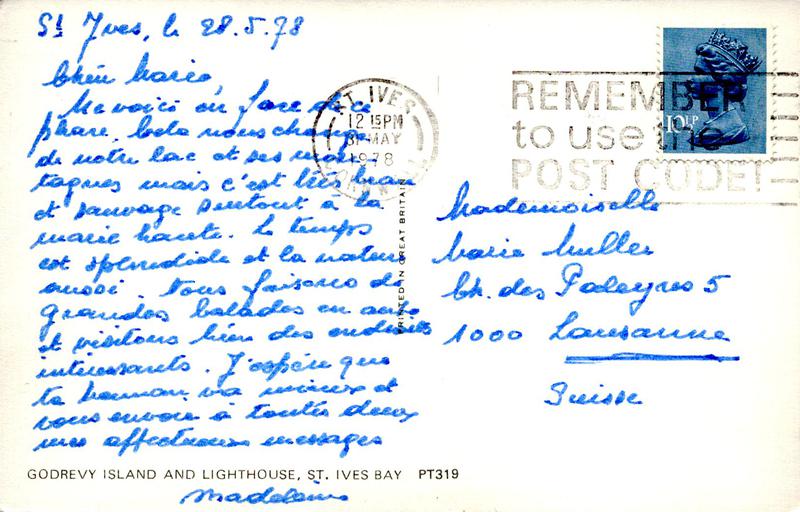 St Yves, le 28.5.78
Chère Marie,
Me voici en face de ce
phare. Cela nous change
de notre lac et ses mon
tagnes mais c'est très beau
et sauvage surtout à la
marée haute. Le temps
est splendide et la nature
aussi. Nous faisons de
grandes balades en auto
et visitons bien des endroits
intéressants. J'espère que
ta maman va mieux et
vous envoie à toutes deux
mes affectueux messages
Madeleine
GODREVY ISLAND AND LIGHTHOUSE, ST. IVES BAY PT319
PRINTED IN GREAT BRITAIN
ST. IVES
12 15 PM
31 MAY
1978
REMEMBER
to use the
POST CODE!
10½P
Mademoiselle
Marie Muller
Ch. des Paleyres 5
1000 Lausanne
Suisse